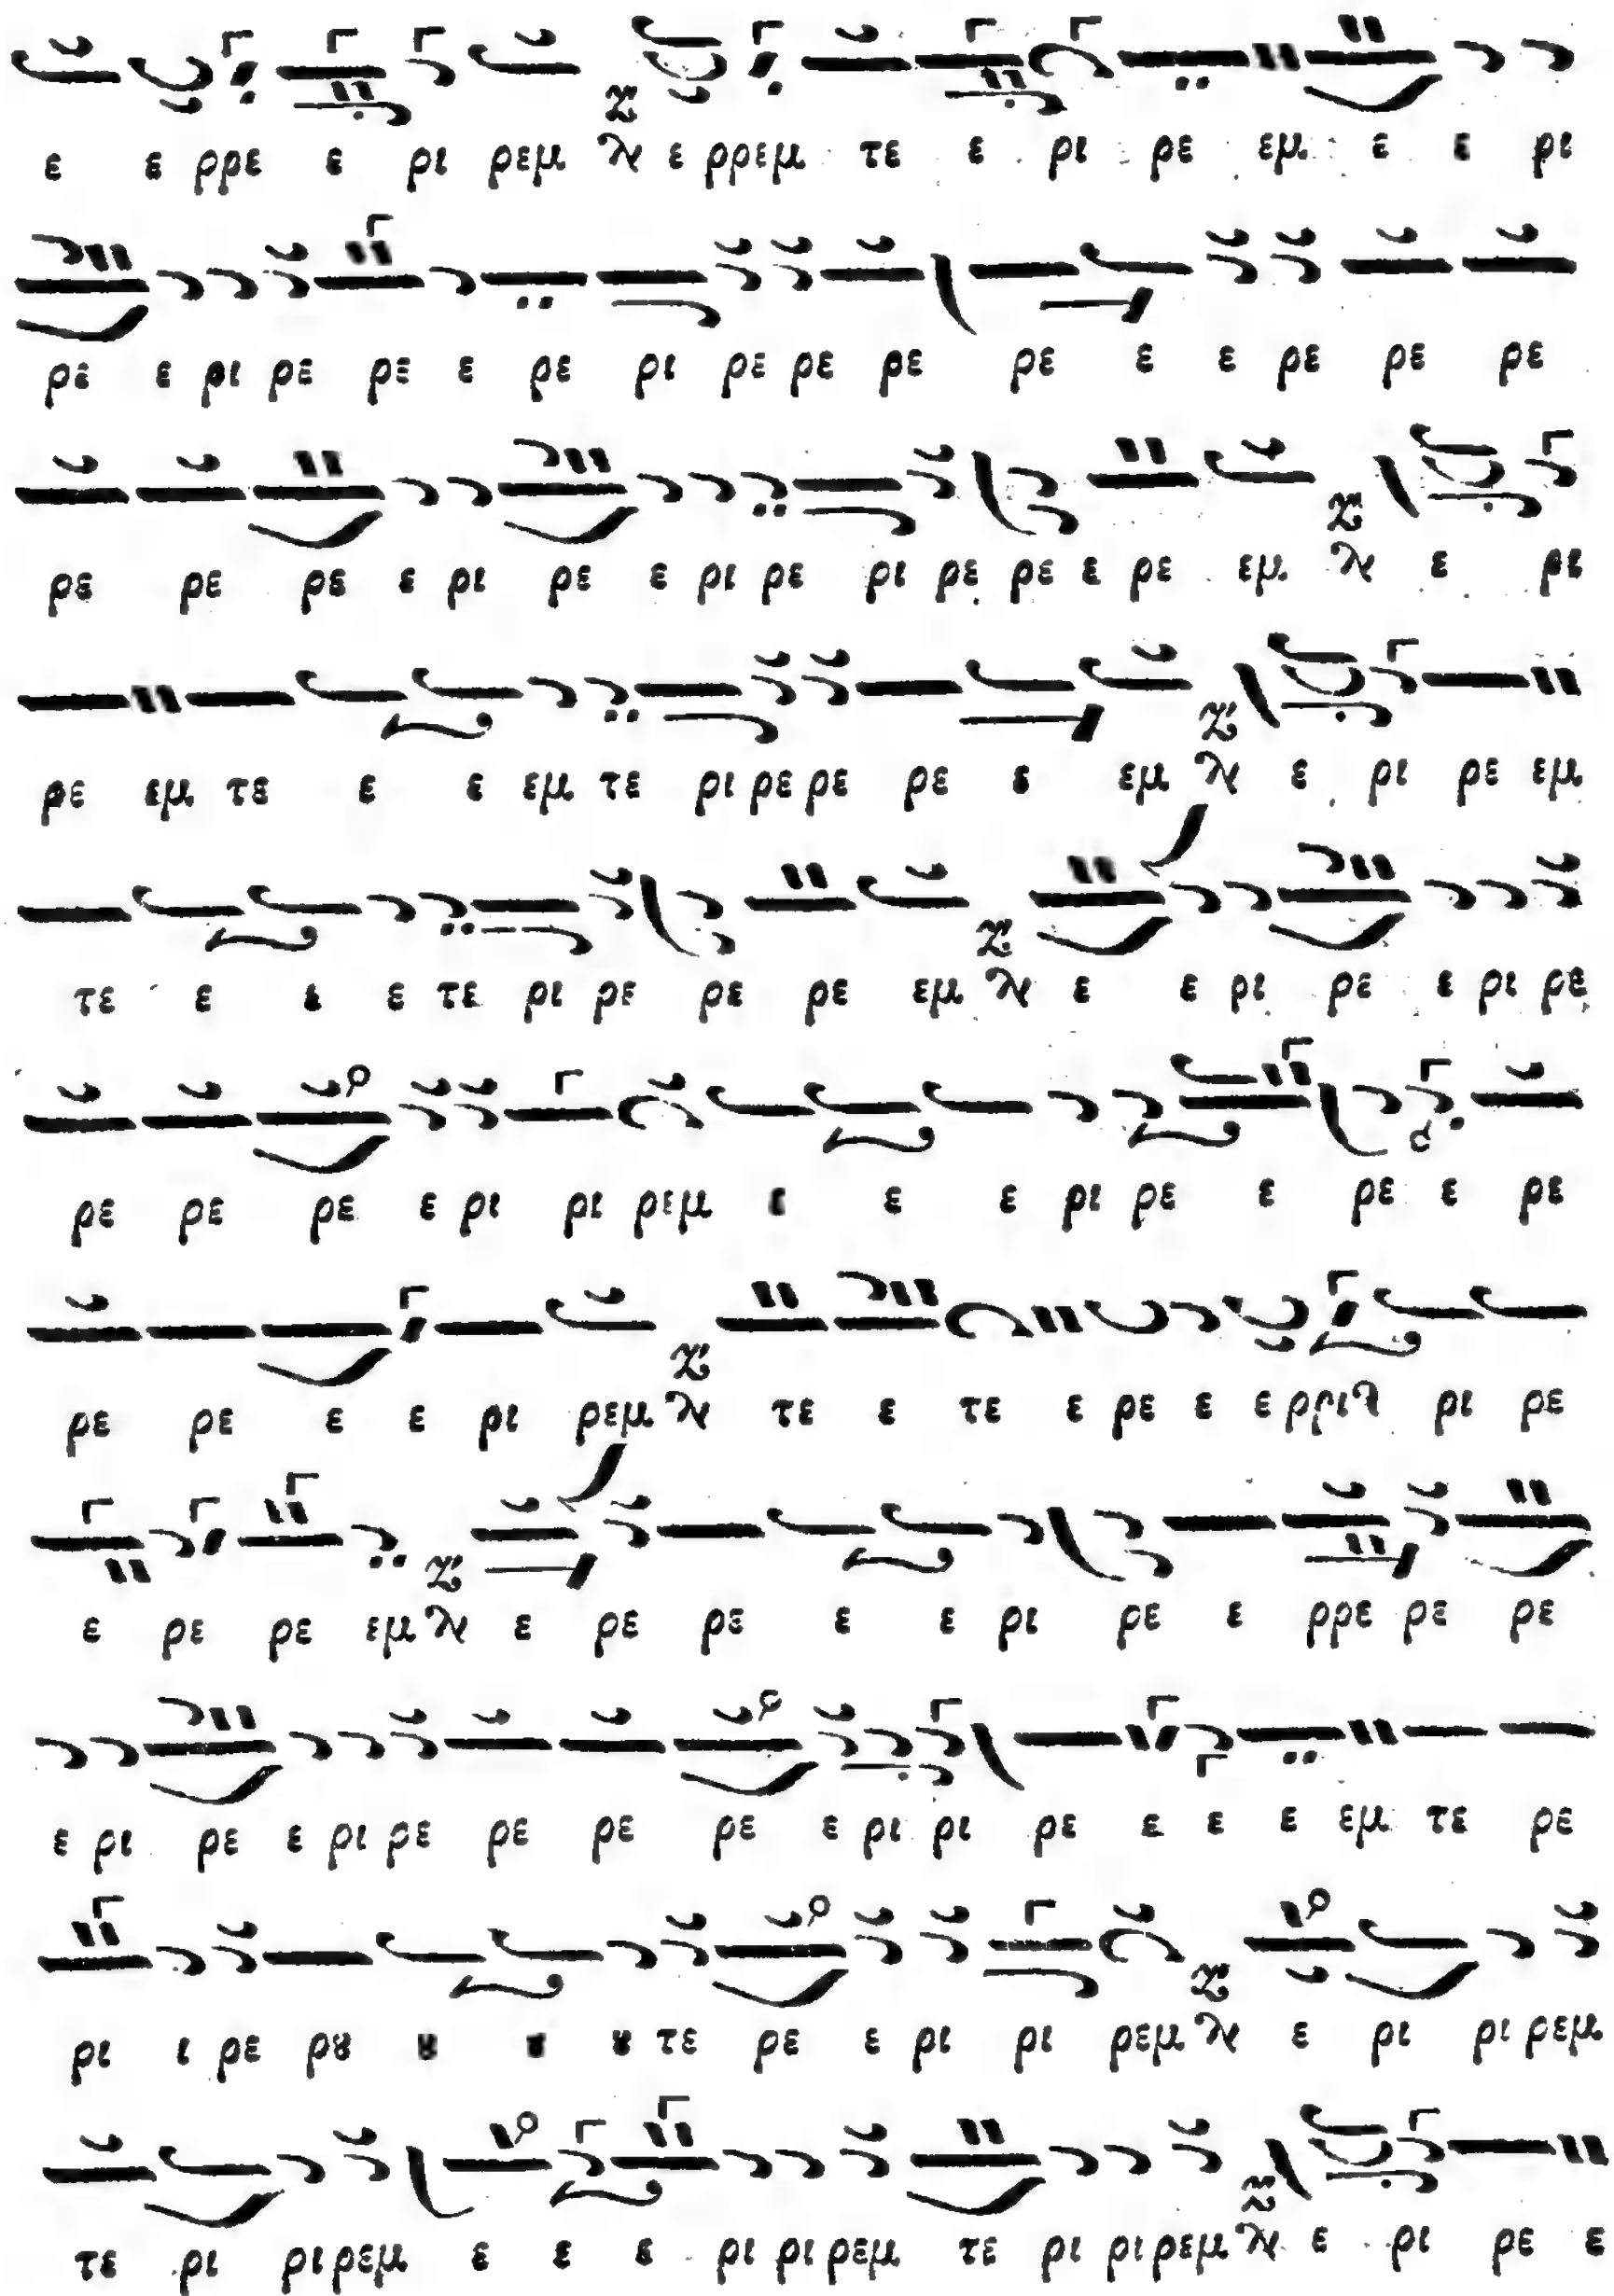 ε ε ρρε ε ρι ρεμ ε ρρεμ τε ε ρι ρε εμ ε ε ρι
ρε ε ρι ρε ρε ε ρε ρι ρε ρε ρε ρε ε ε ρε ρε ρε
ρε ρε ρε ε ρι ρε ε ρι ρε ρι ρε ρε ε ρε εμ ε ρι
ρε εμ τε ε ε εμ τε ρι ρε ρε ρε ε εμ ε ρι ρε εμ
τε ε ε ε τε ρι ρε ρε ρε εμ ε ε ρι ρε ε ρι ρε
ρε ρε ρε ε ρι ρι ρεμ ε ε ε ρι ρε ε ρε ε ρε
ρε ρε ε ε ρι ρεμ τε ε τε ε ρε ε ε ρι ρε
ε ρε ρε εμ ε ρε ρε ε ε ρι ρε ε ρρε ρε ρε
ε ρι ρε ε ρι ρε ρε ρε ρε ε ρι ρι ρε ε ε ε εμ τε ρε
ρι ι ρε ρȣ ȣ ȣ ȣ τε ρε ε ρι ρι ρεμ ε ρι ρι ρεμ
τε ρι ρι ρεμ ε ε ε ρι ρι ρεμ τε ρι ρι ρεμ ε ρι ρε ε